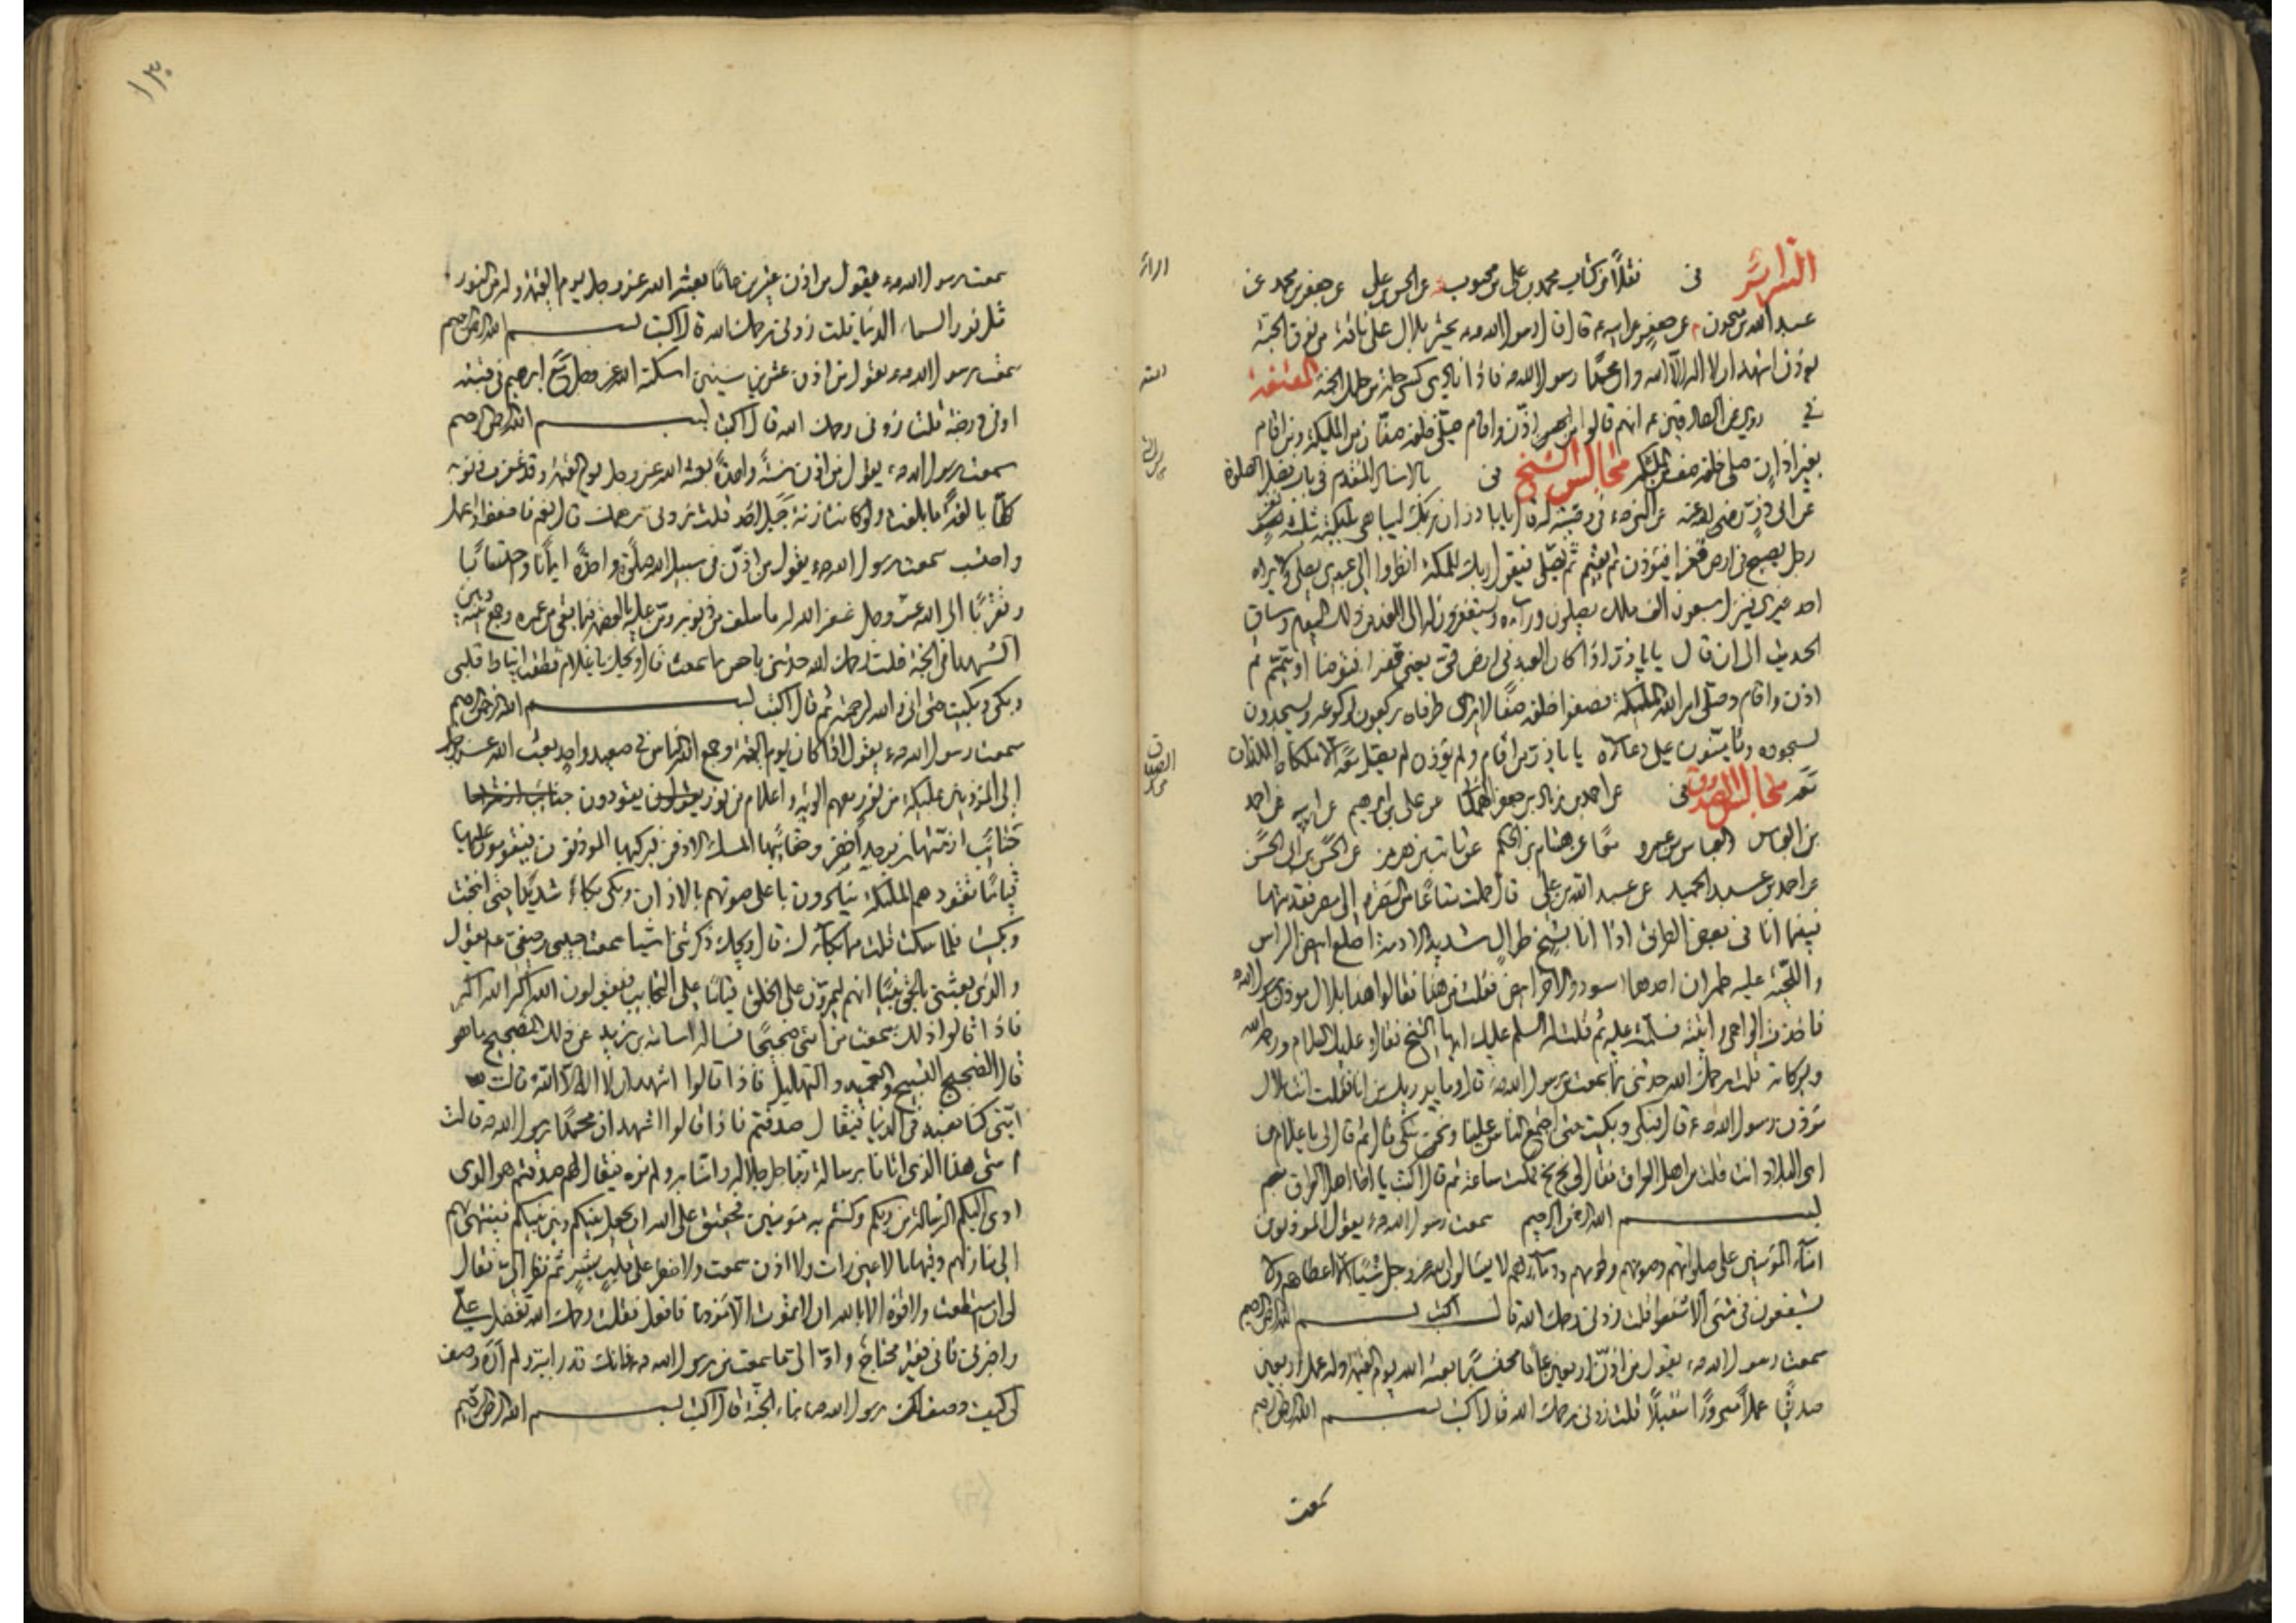 السرائر فى نقلاً من كتاب محمد بن علي بن محبوب عن الحسن بن علي عن جعفر بن محمد عن
عبد الله بن ميمون عن جعفر عن ابيه ع قال قال رسول الله ص يحشر بلال على ناقة من نوق الجنة
يؤذن اشهد ان لا اله الا الله وان محمدًا رسول الله فاذا نادى كسى حلة من حلل الجنة المقنعة
في روى عن الصادقين ع انهم قالوا من اذّن واقام صلّى خلفه صفّان من الملئكة ومن اقام
بغير اذان صلى خلفه صف من الملئكة مجالس الشيخ فى بالاسناد المتقدم فى باب فضل الصلوة
عن ابى ذر رضى الله عنه عن النبي ص فى وصيته له قال يا با ذر ان ربك ليباهى ملئكته بثلثة نفر
رجل يصبح فى ارض قفرا فيؤذن ثم يقيم ثم يصلّى فيقول ربك للملئكة انظروا الى عبدى يصلى ولا يراه
احد غيرى فينزل سبعون الف ملك يصلون وراءه ويستغفرون له الى الغد من ذلك اليوم وساق
الحديث الى ان قال يا با ذر اذا كان العبد فى ارض قى يعنى قفرا فتوضأ او تيمّم ثم
اذن واقام وصلى امر الله الملئكة فصفوا خلفه صفًا لا يرى طرفاه يركعون لركوعه ويسجدون
لسجوده ويؤمّنون على دعائه يا با ذر من اقام ولم يؤذن لم يصلّ معه الا ملكاه اللذان
معه مجالس الصدوق فى عن احمد بن زياد بن جعفر الهمدانى عن على بن ابرهيم عن ابيه عن احمد
بن العباس والعباس بن عمرو معًا عن هشام بن الحكم عن ثابت بن هرمز عن الحسن بن ابى الحسن
عن احمد بن عبد الحميد عن عبد الله بن على قال حملت متاعًا من البصرة الى مصر فقدمتها
فبينما انا فى بعض الطريق اذا انا بشيخ طوال شديد الادمة اصلع ابيض الراس
واللحية عليه طمران احدهما اسود والاخر ابيض فقلت من هذا فقالوا هذا بلال مؤذن رسول الله
فاخذت الواحى واتيته فسلّمت عليه ثم قلت له السلم عليك ايها الشيخ فقال وعليك السلام ورحمة الله
وبركاته قلت رحمك الله حدثنى بما سمعت من رسول الله ص قال وما يدريك من انا فقلت انت بلال
مؤذن رسول الله ص قال فبكى وبكيت حتى اجتمع الناس علينا ونحن نبكى قال ثم قال لى يا غلام من
اى البلاد انت قلت من اهل العراق فقال لى بخ بخ فمكث ساعة ثم قال اكتب يا اخا اهل العراق
بسم الله الرحمن الرحيم سمعت رسول الله ص يقول المؤذنون
امناء المؤمنين على صلواتهم وصومهم ولحومهم ودمائهم لا يسئلون الله عز وجل شيئًا الا اعطاهم ولا
يشفعون فى شىء الا شفعوا قلت زدنى رحمك الله قال اكتب بسم الله الرحمن الرحيم
سمعت رسول الله ص يقول من اذّن اربعين عامًا محتسبًا بعثه الله يوم القيمة وله عمل اربعين
صدّيقًا عملاً مبرورًا متقبلاً قلت زدنى رحمك الله قال اكتب بسم الله الرحمن الرحيم
سمعت
١٣٠
سمعت رسول الله ص يقول من اذن عشرين عامًا بعثه الله عز وجل يوم القيمة وله من النور
مثل نور السماء الدنيا قلت زدنى رحمك الله قال اكتب بسم الله الرحمن الرحيم
سمعت رسول الله ص يقول من اذن عشر سنين اسكنه الله عز وجل مع ابرهيم فى قبته
او فى درجته قلت زدنى رحمك الله قال اكتب بسم الله الرحمن الرحيم
سمعت رسول الله ص يقول من اذن سنةً واحدةً بعثه الله عز وجل يوم القيمة وقد غفرت ذنوبه
كلّها بالغةً ما بلغت ولو كانت زنة جبل احد قلت زدنى رحمك الله قال نعم فاحفظ واعمل
واحتسب سمعت رسول الله ص يقول من اذّن فى سبيل الله صلوةً واحدةً ايمانًا واحتسابًا
وتقربًا الى الله عز وجل غفر الله له ما سلف من ذنوبه ومنّ عليه بالعصمة فيما بقى من عمره وجمع بينه وبين
الشهدا فى الجنة قلت رحمك الله حدثنى باحسن ما سمعت قال ويحك يا غلام قطعت انياط قلبى
وبكى وبكيت حتى انى والله لرحمته ثم قال اكتب بسم الله الرحمن الرحيم
سمعت رسول الله ص يقول اذا كان يوم القيمة وجمع الله الناس فى صعيد واحد بعث الله عز وجل
الى المؤذنين بملئكة من نور معهم الوية واعلام من نور يقودون
جنائب ازمّتها زبرجد اخضر وحقائبها المسك الاذفر يركبها المؤذنون فيقومون عليها
قيامًا تقودهم الملئكة ينادون باعلى صوتهم بالاذان وبكى بكاءً شديدًا حتى انتحب
وبكيت فلما سكت قلت مما بكاؤك قال ويحك ذكرتنى اشيا سمعت حبيبى وصفيى ع يقول
والذى بعثنى بالحق نبيًا انهم ليمرون على الخلق قيامًا على النجائب فيقولون الله اكبر الله اكبر
فاذا قالوا ذلك سمعت لامتى ضجيجًا فساله اسامة بن زيد عن ذلك الضجيج ما هو
قال الضجيج التسبيح والتحميد والتهليل فاذا قالوا اشهد ان لا اله الا الله قالت
امتى كنا نعبده فى الدنيا فيقال صدقتم فاذا قالوا اشهد ان محمدًا رسول الله ص قالت
امتى هذا الذى اتانا برسالة ربنا جل جلاله وامنا به ولم نره فيقال لهم صدقتم هو الذى
ادى اليكم الرسالة من ربكم وكنتم به مؤمنين فحقيق على الله ان يجمع بينكم وبين نبيكم فينتهى بهم
الى منازلهم وفيها ما لا عين رات ولا اذن سمعت ولا خطر على قلب بشر ثم نظر الى فقال
لى ان استطعت ولا قوة الا بالله ان لا تموت الا مؤذنًا فافعل فقلت رحمك الله تفضل علىّ
واخبرنى فانى فقير محتاج وادّ الى ما سمعت من رسول الله ص فانك قد رايته ولم اره وصف
لى كيف وصف لك رسول الله ص بناء الجنة قال اكتب بسم الله الرحمن الرحيم